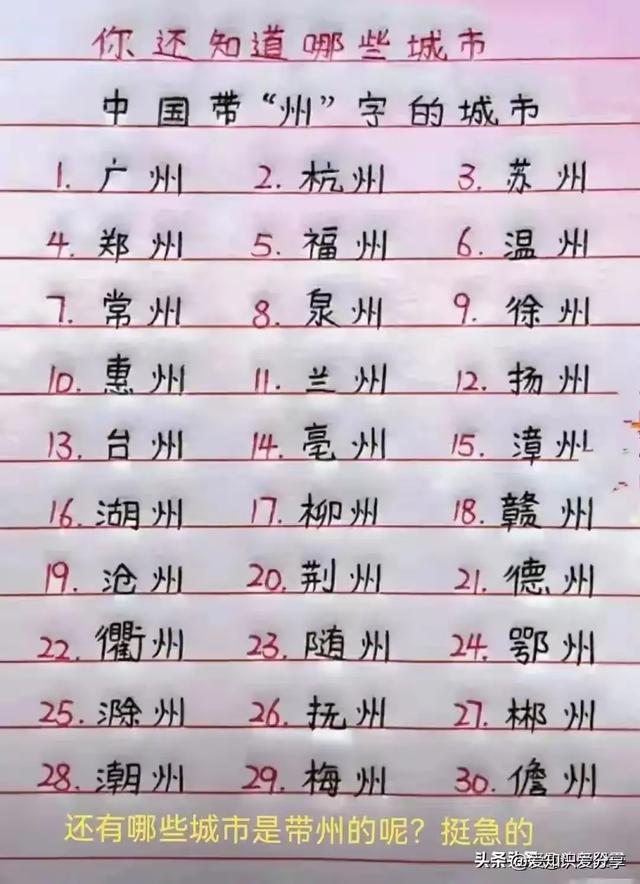 你还知道哪些城市
中国带“州”字的城市
1. 广州 2. 杭州 3. 苏州
4. 郑州 5. 福州 6. 温州
7. 常州 8. 泉州 9. 徐州
10. 惠州 11. 兰州 12. 扬州
13. 台州 14. 毫州 15. 漳州
16. 湖州 17. 柳州 18. 赣州
19. 沧州 20. 荆州 21. 德州
22. 衢州 23. 随州 24. 鄂州
25. 滁州 26. 抚州 27. 郴州
28. 潮州 29. 梅州 30. 儋州
还有哪些城市是带州的呢？挺急的
头条 @爱知识爱分享